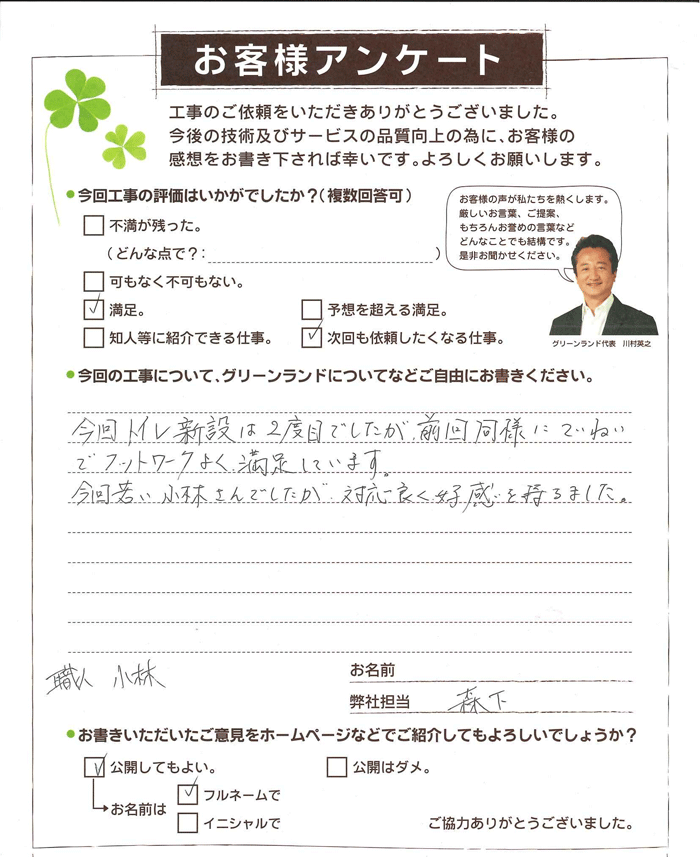 お客様アンケート
工事のご依頼をいただきありがとうございました。
今後の技術及びサービスの品質向上の為に、お客様の
感想をお書き下されば幸いです。よろしくお願いします。
今回工事の評価はいかがでしたか？（複数回答可）
不満が残った。
（どんな点で？：　　　）
可もなく不可もない。
満足。
予想を超える満足。
知人等に紹介できる仕事。
次回も依頼したくなる仕事。
お客様の声が私たちを熱くします。
厳しいお言葉、ご提案、
もちろんお誉めの言葉など
どんなことでも結構です。
是非お聞かせください。
グリーンランド代表　川村英之
今回の工事について、グリーンランドについてなどご自由にお書きください。
今回トイレ新設は2度目でしたが、前回同様にていねい
でフットワークよく、満足しています。
今回若い小林さんでしたが、対応良く好感を持てました。
職人 小林
お名前
弊社担当 森下
お書きいただいたご意見をホームページなどでご紹介してもよろしいでしょうか？
公開してもよい。
公開はダメ。
お名前は
フルネームで
イニシャルで
ご協力ありがとうございました。